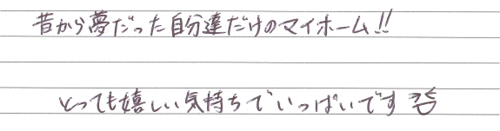 昔から夢だった自分達だけのマイホーム!!
とっても嬉しい気持ちでいっぱいです